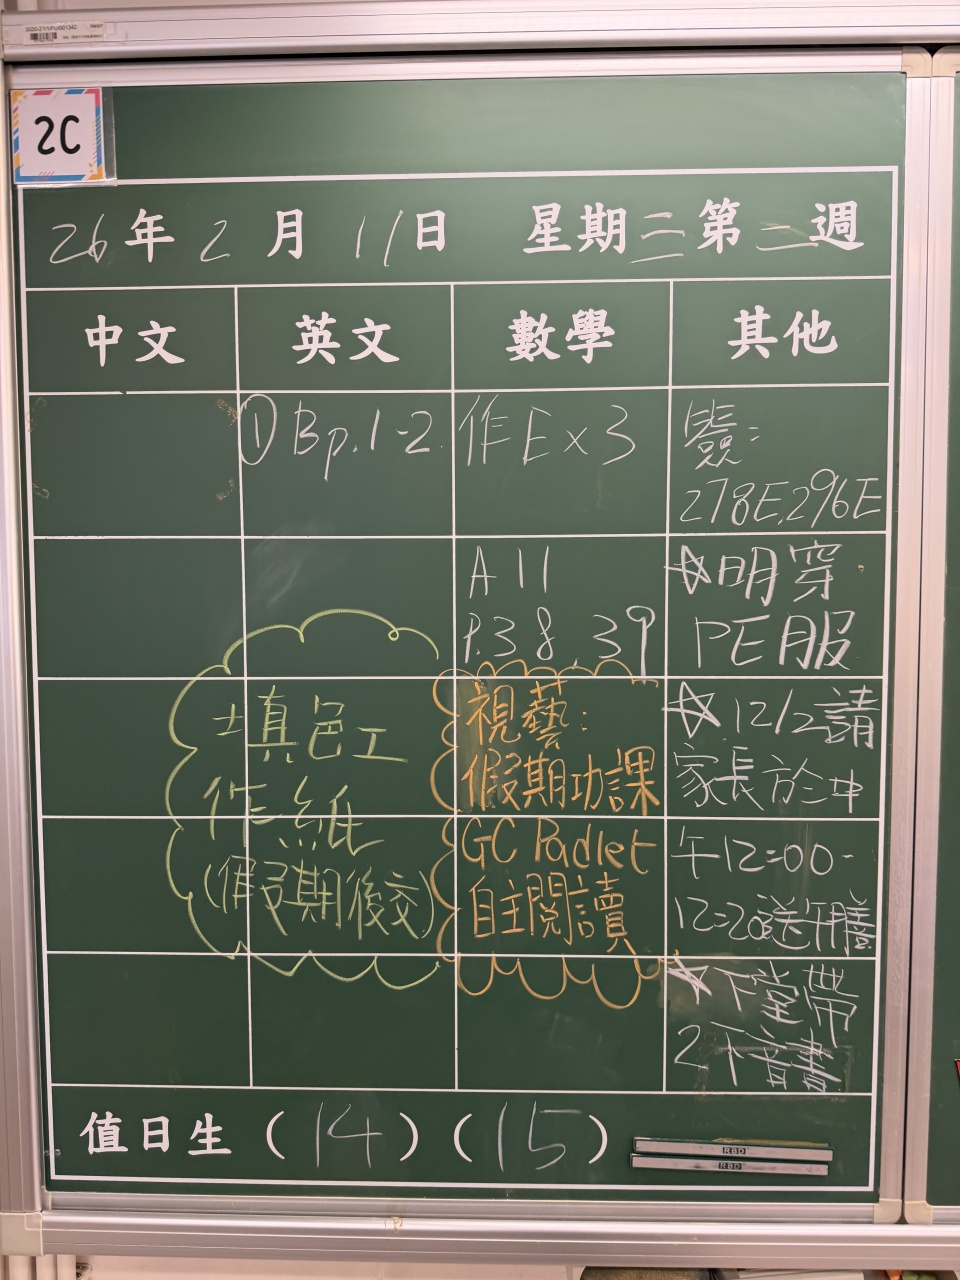 2020-21/VPU/001342
2C
26年2月11日 星期三第二週
中文 英文 數學 其他
①Bp.1-2
作Ex3
簽:
278E,296E
A11
P.38,39
☆明穿
PE服
填色工
作紙
(假期後交)
視藝:
假期功課
GC Padlet
自主閱讀
☆12/2請
家長於中
午12:00-
12:20送午膳
★下堂帶
2下音書
值日生(14)(15)
RBD
RBD